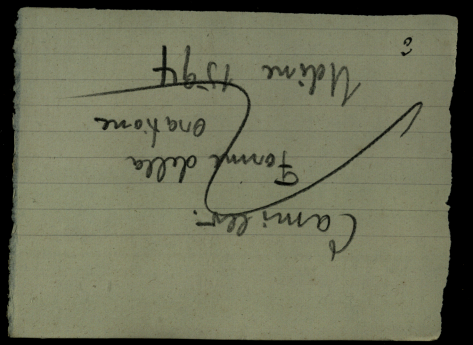 Camillo.
Forme della
oratione
Udine 1594